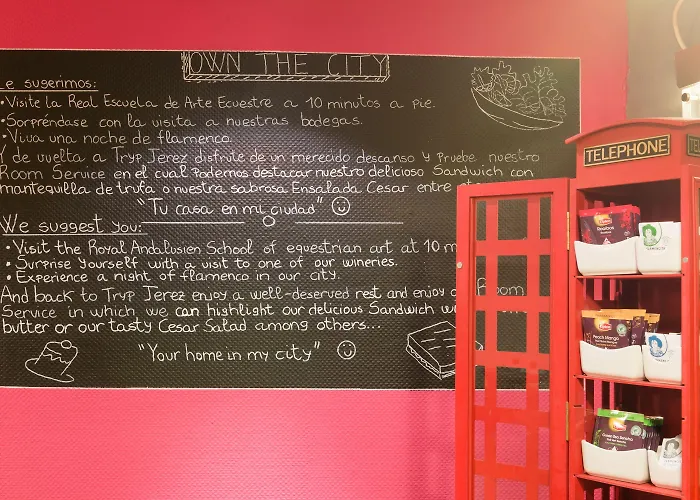 OWN THE CITY
Le sugerimos:
• Visite la Real Escuela de Arte Ecuestre a 10 minutos a pie.
• Sorpréndase con la visita a nuestras bodegas.
• Viva una noche de flamenco.
Y de vuelta a Tryp Jerez disfrute de un merecido descanso y pruebe nuestro
Room Service en el cual podemos destacar nuestro delicioso Sandwich con
mantequilla de trufa o nuestra sabrosa Ensalada Cesar entre
"Tu casa en mi ciudad"
We suggest you:
• Visit the Royal Andalusien School of equestrian art at 10 m
• Surprise yourself with a visit to one of our wineries.
• Experience a night of flamenco in our city.
And back to Tryp Jerez enjoy a well-deserved rest and enjoy o Room
Service in which we can highlight our delicious Sandwich w
butter or our tasty Cesar Salad among others...
"Your home in my city"
TELEPHONE
Lipton
Rooibos
Lipton
Peach Mango
Lipton